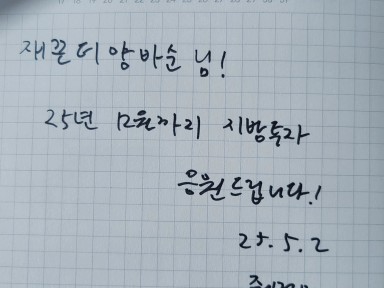 재끌더 양바순 님!
25년 12월까지 지방투자
응원드립니다!
25.5.2